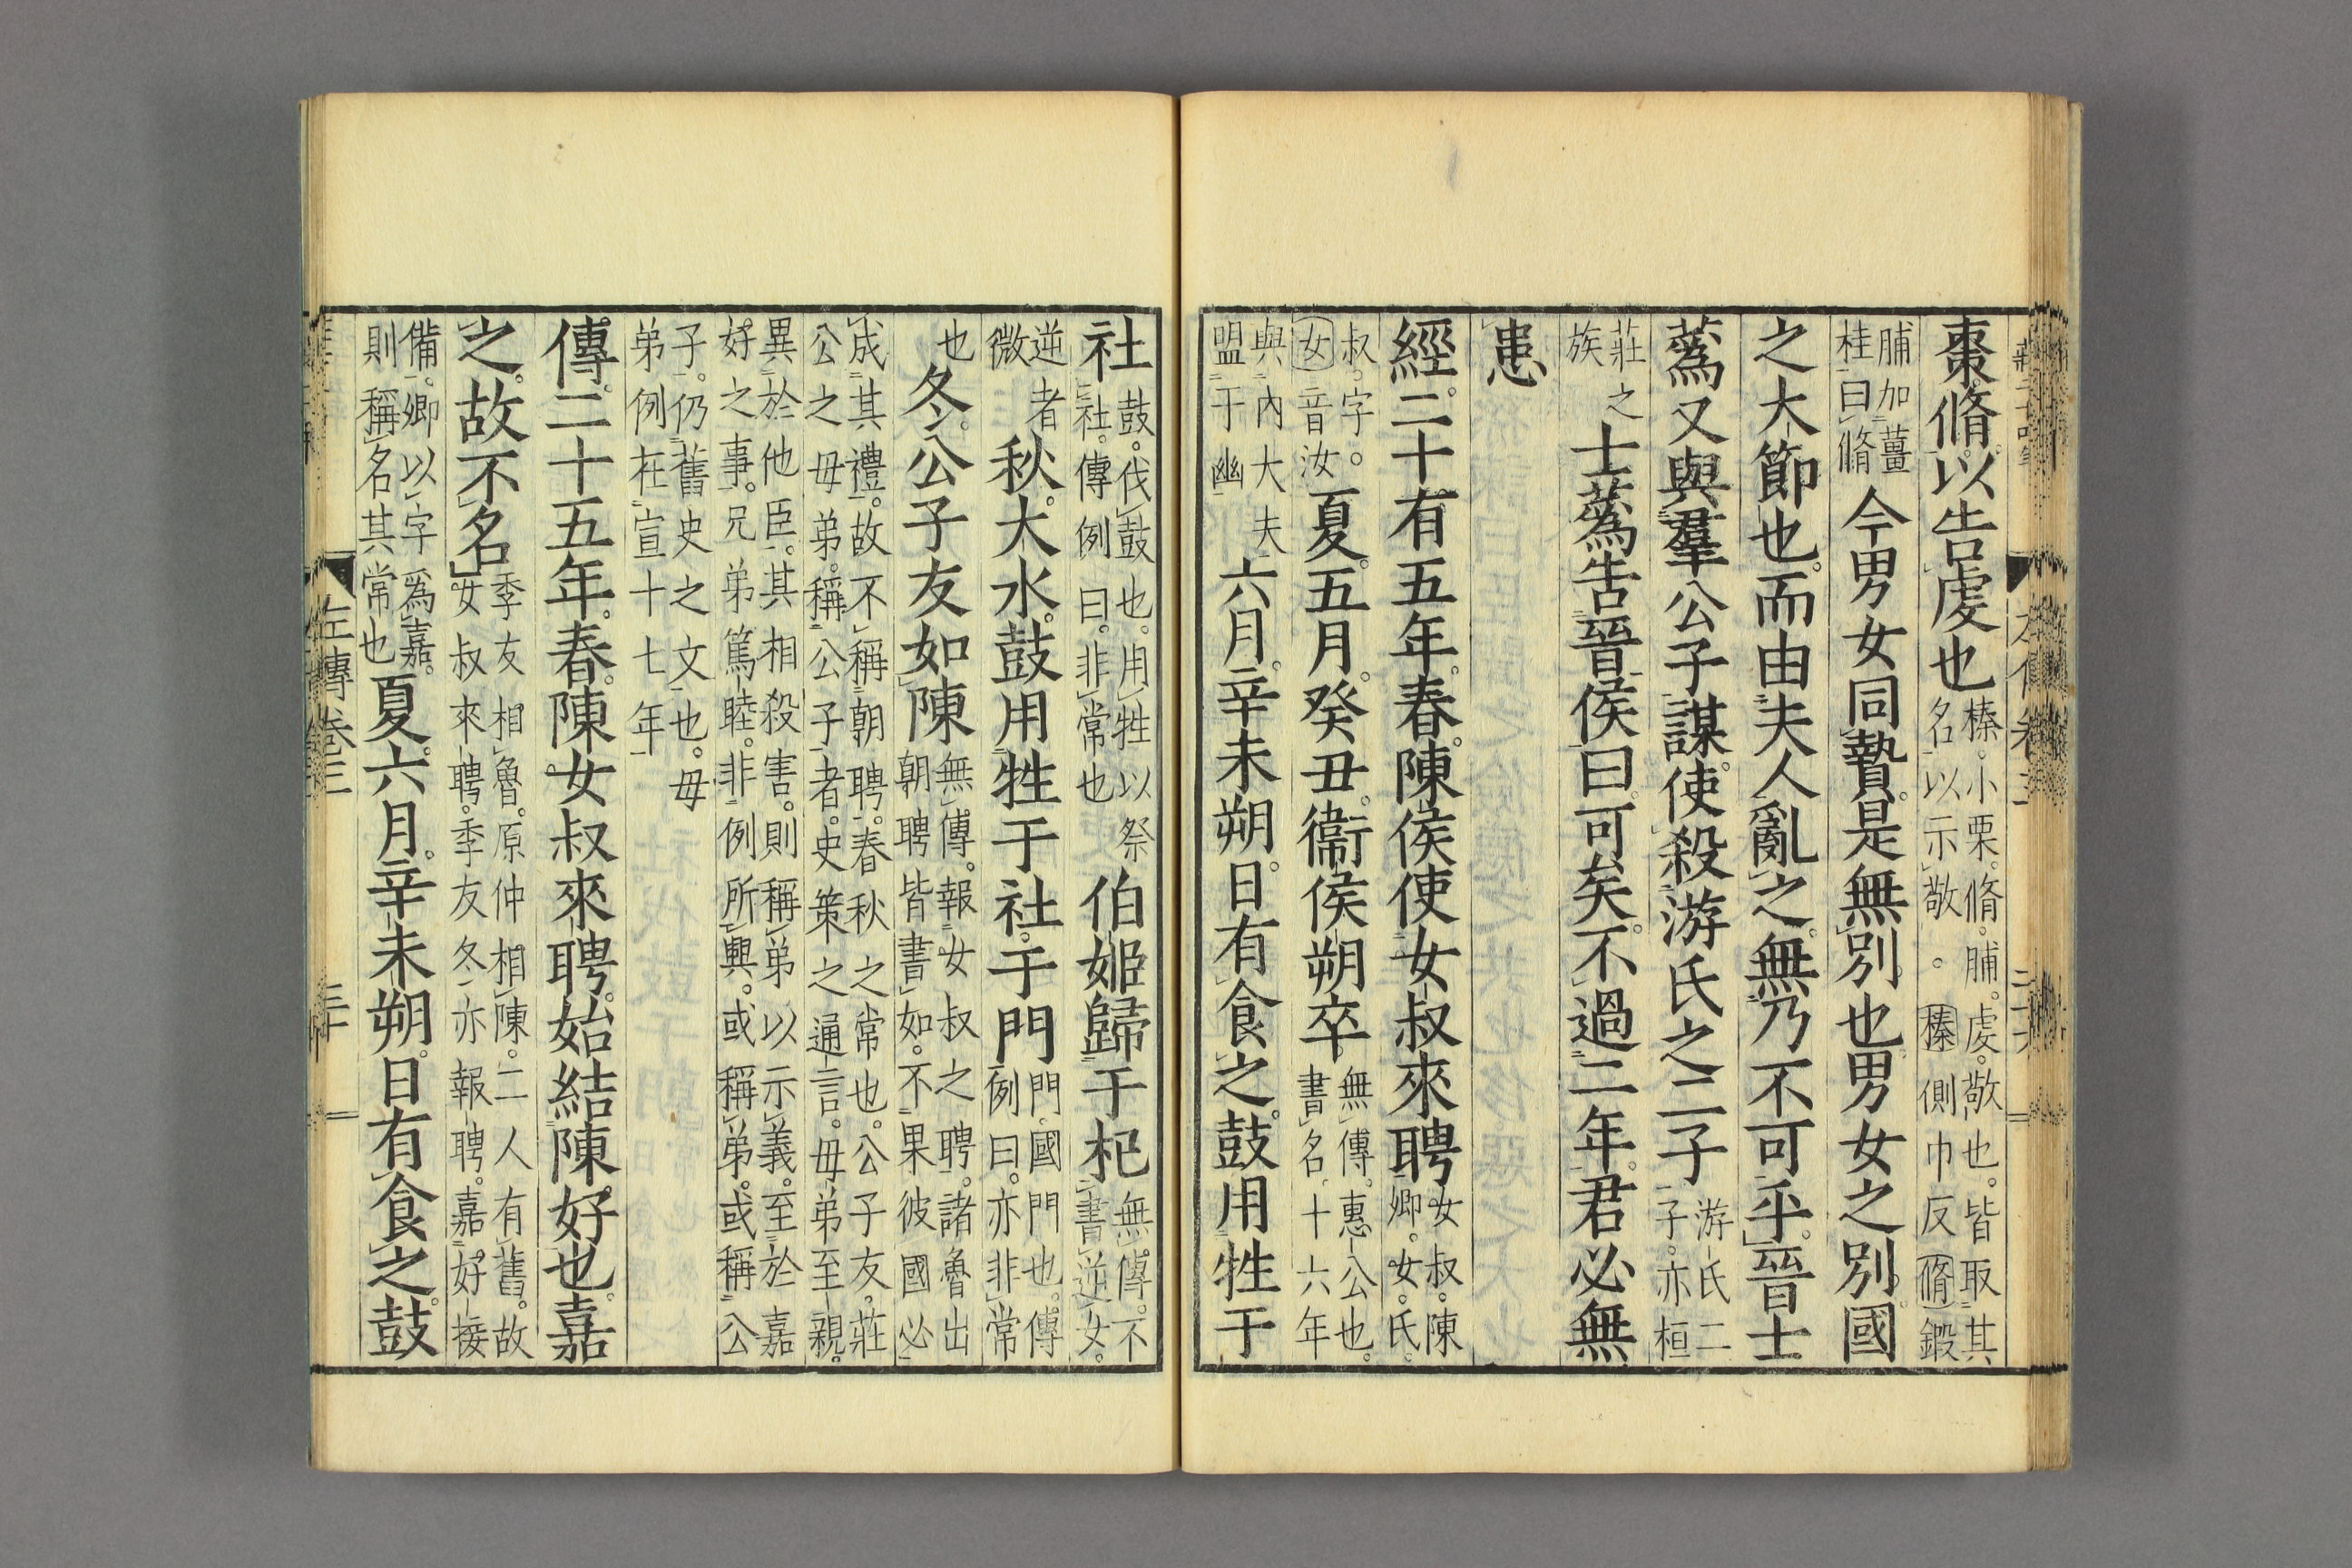 棗脩以告虔也榛小栗脩脯虔敬也皆取其名以示敬。榛側巾反脩鍛
脯加薑桂曰脩今男女同贄是無別也男女之別國
之大節也而由夫人亂之無乃不可乎晉士
蒍又與羣公子謀使殺游氏之二子游氏二子亦桓
莊之族士蒍告晉侯曰可矣不過二年君必無
患
經二十有五年春陳侯使女叔來聘女叔陳卿女氏
叔字。女音汝夏五月癸丑衞侯朔卒無傳惠公也書名十六年
與內大夫盟于幽六月辛未朔日有食之鼓用牲于
社鼓伐鼓也用牲以祭社傳例曰非常也伯姬歸于杞無傳不書逆女
逆者微秋大水鼓用牲于社于門門國門也傳例曰亦非常
也冬公子友如陳無傳報女叔之聘諸魯出朝聘皆書如不果彼國必
成其禮故不稱朝聘春秋之常也公子友莊公之毋弟稱公子者史策之通言毋弟至親
異於他臣其相殺害則稱弟以示義至於嘉好之事兄弟篤睦非例所興或稱弟或稱公
子仍舊史之文也毋弟例在宣十七年
傳二十五年春陳女叔來聘始結陳好也嘉
之故不名季友相魯原仲相陳二人有舊故女叔來聘季友冬亦報聘嘉好接
備卿以字爲嘉則稱名其常也夏六月辛未朔日有食之鼓
左傳卷三
三十